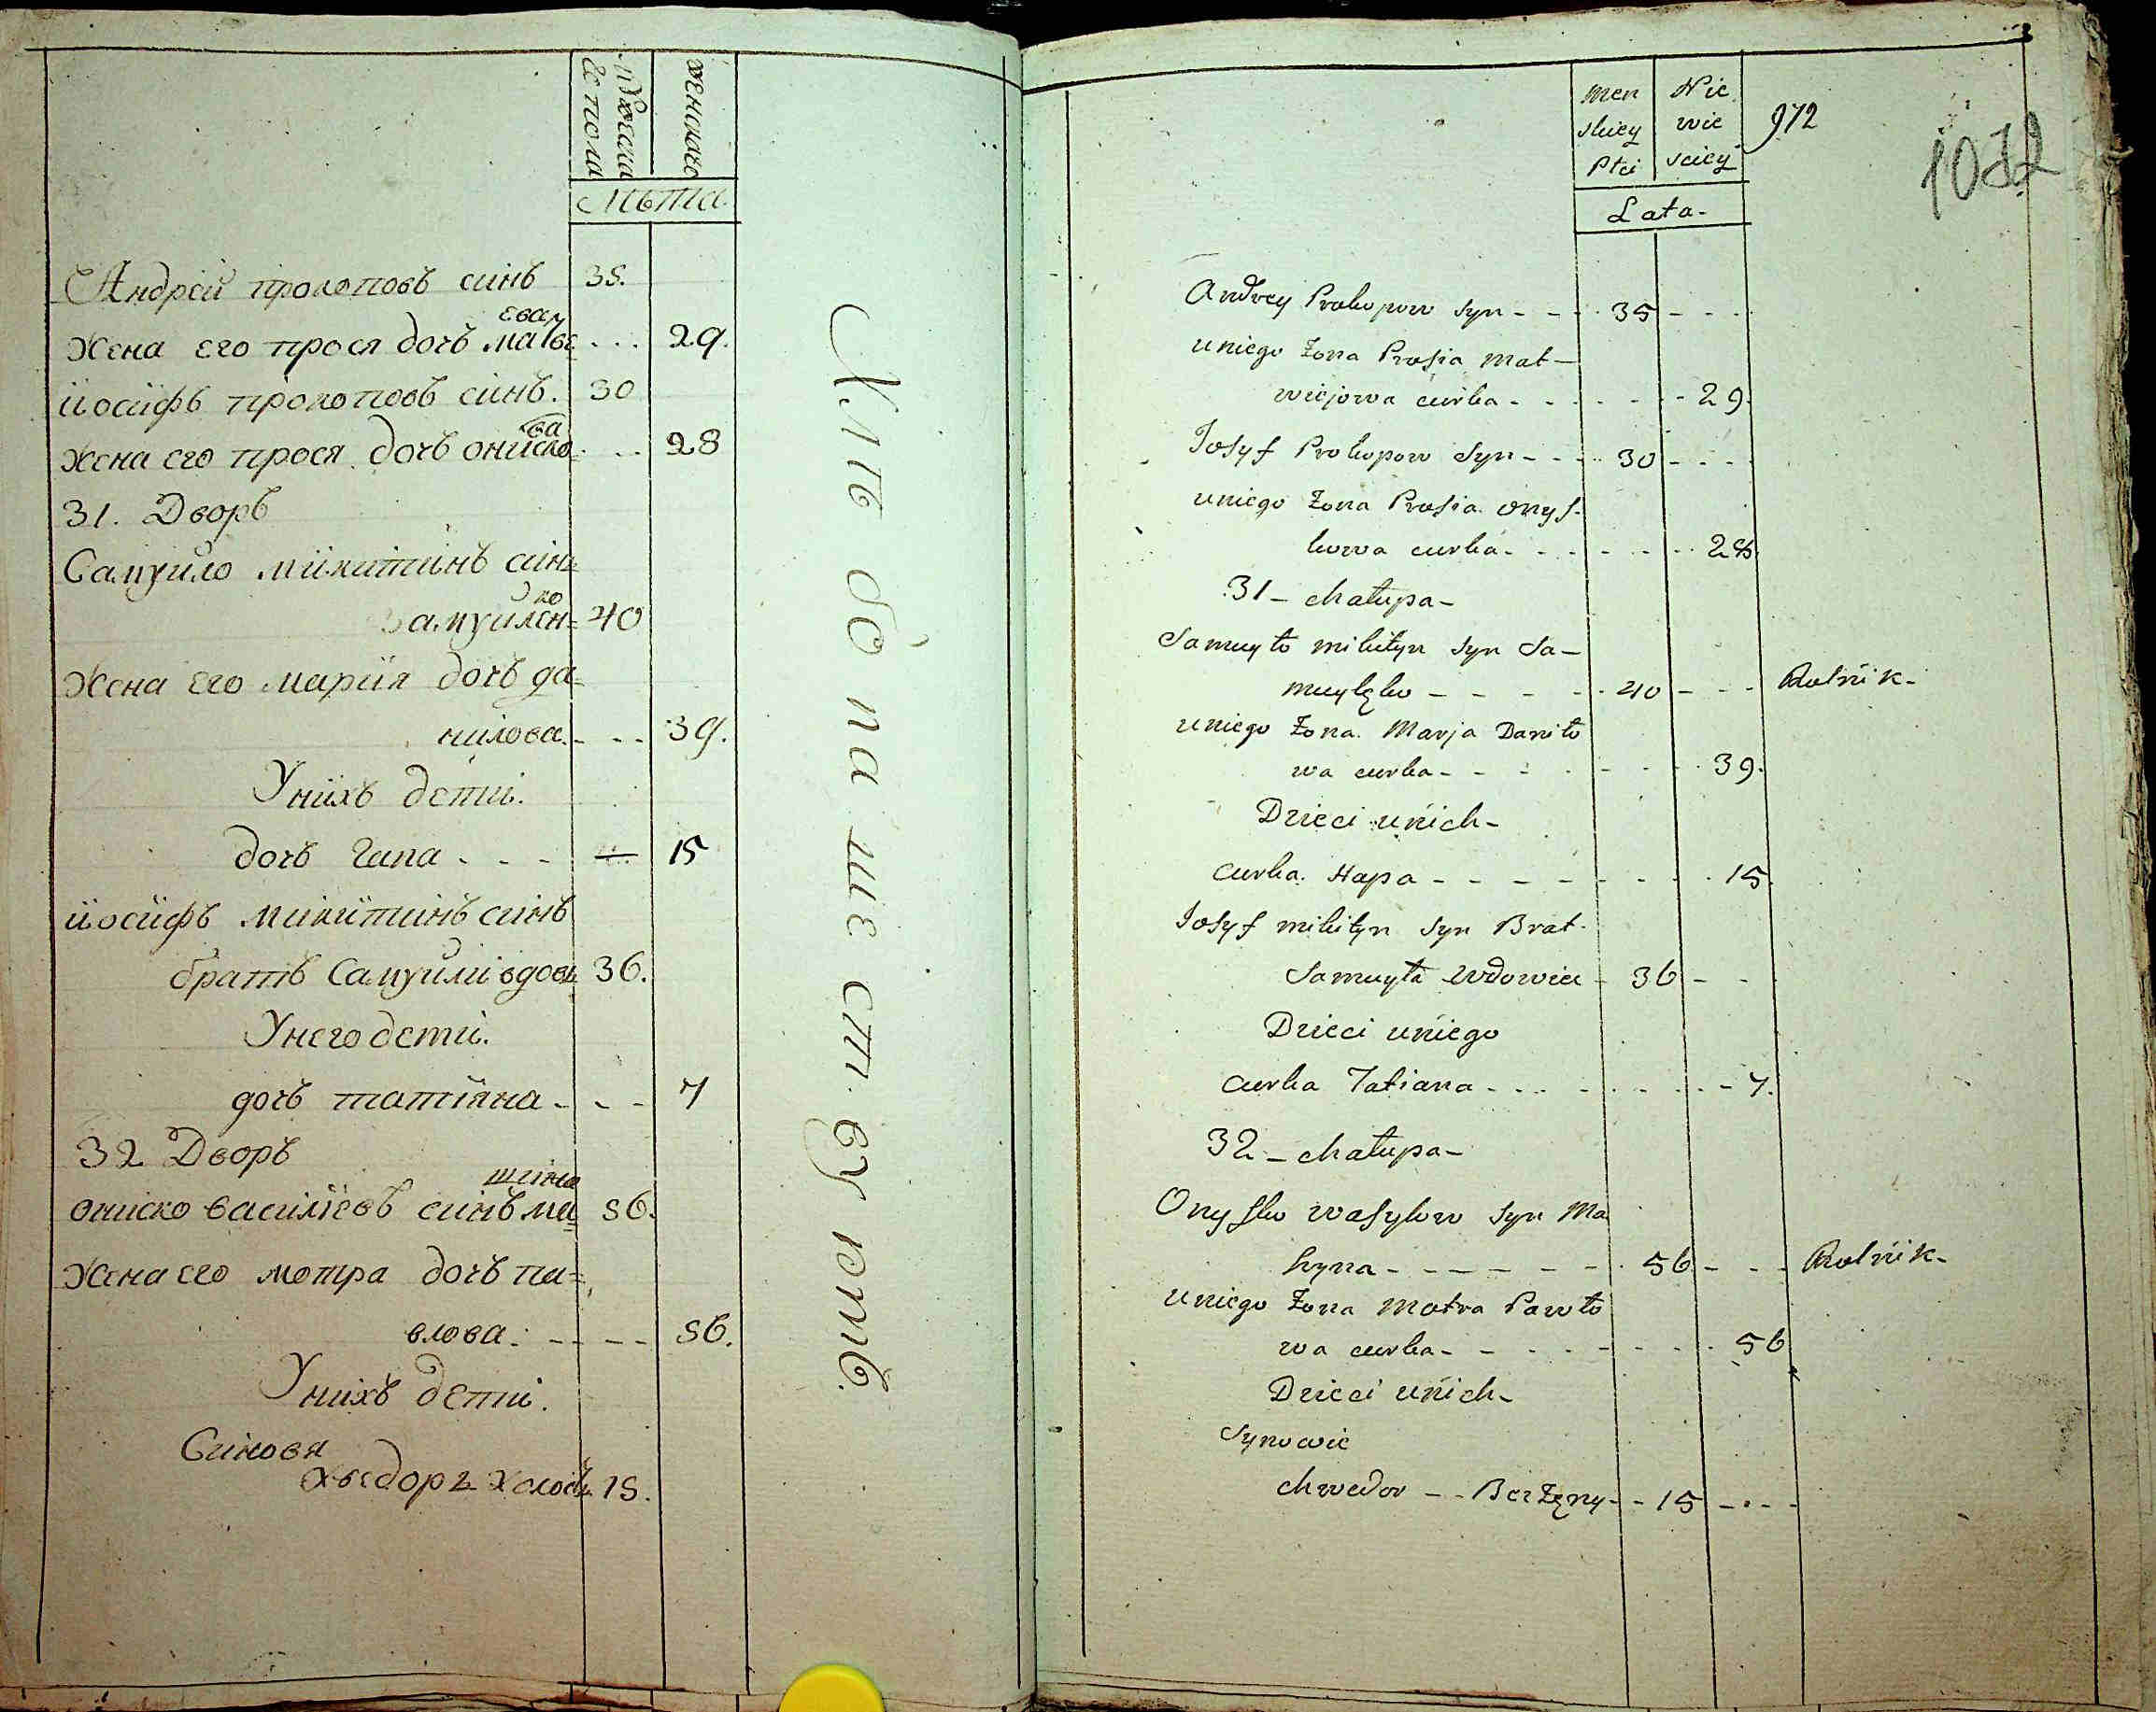 мужеска
пола
женского
лѣта
Андрей прокоповъ синъ 35.
ева
жена его прося дочъ матве ... 29.
иосифъ прокоповъ синъ. 30
ва
жена его прося дочъ ониско ... 28
31. Дворъ
Самуйло микитинъ син
ко
Самуйлен= 40
жена его мария дочъ да=
нилова. - - - 39.
Унихъ дети.
дочъ Гапа - - - — 15
иосифъ микитинъ синъ
братъ Самуйли вдов 36.
Унего дети.
дочъ татияна - - - 7
32 Дворъ
шина
ониско василиевъ синъ ма 56.
жена его мотра дочъ па=
влова. - - - - 56.
Унихъ дети.
Синовя
хведоръ холос 15.
Хлѣбопашествуютъ.
men Nie
skiey wie
Płci sciey
972
1032
Lata.
Andrey Prokopow syn - - - 35 - - -
uniego Żona Prosia Mat-
wiejowa curka - - - - - 29.
Josyf Prokopow Syn - - - 30 - - -
uniego Żona Prosia Onys-
kowa curka - - - - - 28.
31 - chałupa -
Samuyło mikityn syn Sa-
muylęko - - - - - 40 - - - Rolnik -
uniego Żona Marja Daniło
wa curka - - - - - - 39.
Dzieci unich -
Curka Hapa - - - - - - 15.
Josyf mikityn syn Brat
Samuyła Wdowiec - 36 - -
Dzieci uniego
Curka Tatiana - - - - - - 7.
32 - chałupa -
Onysko wasylow syn Ma
hyna - - - - - - 56 - - - Rolnik -
uniego Żona Motra Pawło
wa curka - - - - - - 56
Dzieci unich -
Synowie
chwedor - - Bezżęny - - 15 - - -